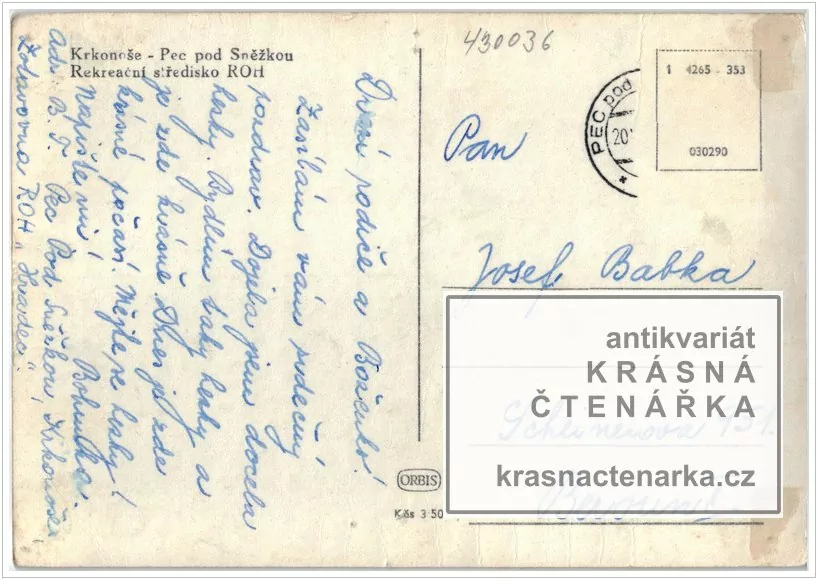 430036
Krkonoše - Pec pod Sněžkou
Rekreační středisko ROH
1 4265 - 353
030290
PEC pod
20
Drazí rodiče a Boženko!
Zasílám vám srdečný
pozdrav. Dojela jsem docela
hezky. Bydlím taky hezky a
je zde krásně Dnes je zde
krásné počasí. Mějte se hezky!
napište mi! Bohunka.
Ads. B. T. Pec Pod Sněžkou, Krkonoše
Zotavovna ROH „Hradec"!
Pan
Josef Babka
antikvariát
KRÁSNÁ
ČTENÁŘKA
krasnactenarka.cz
151.
Beroun
ORBIS
Kčs 3 50